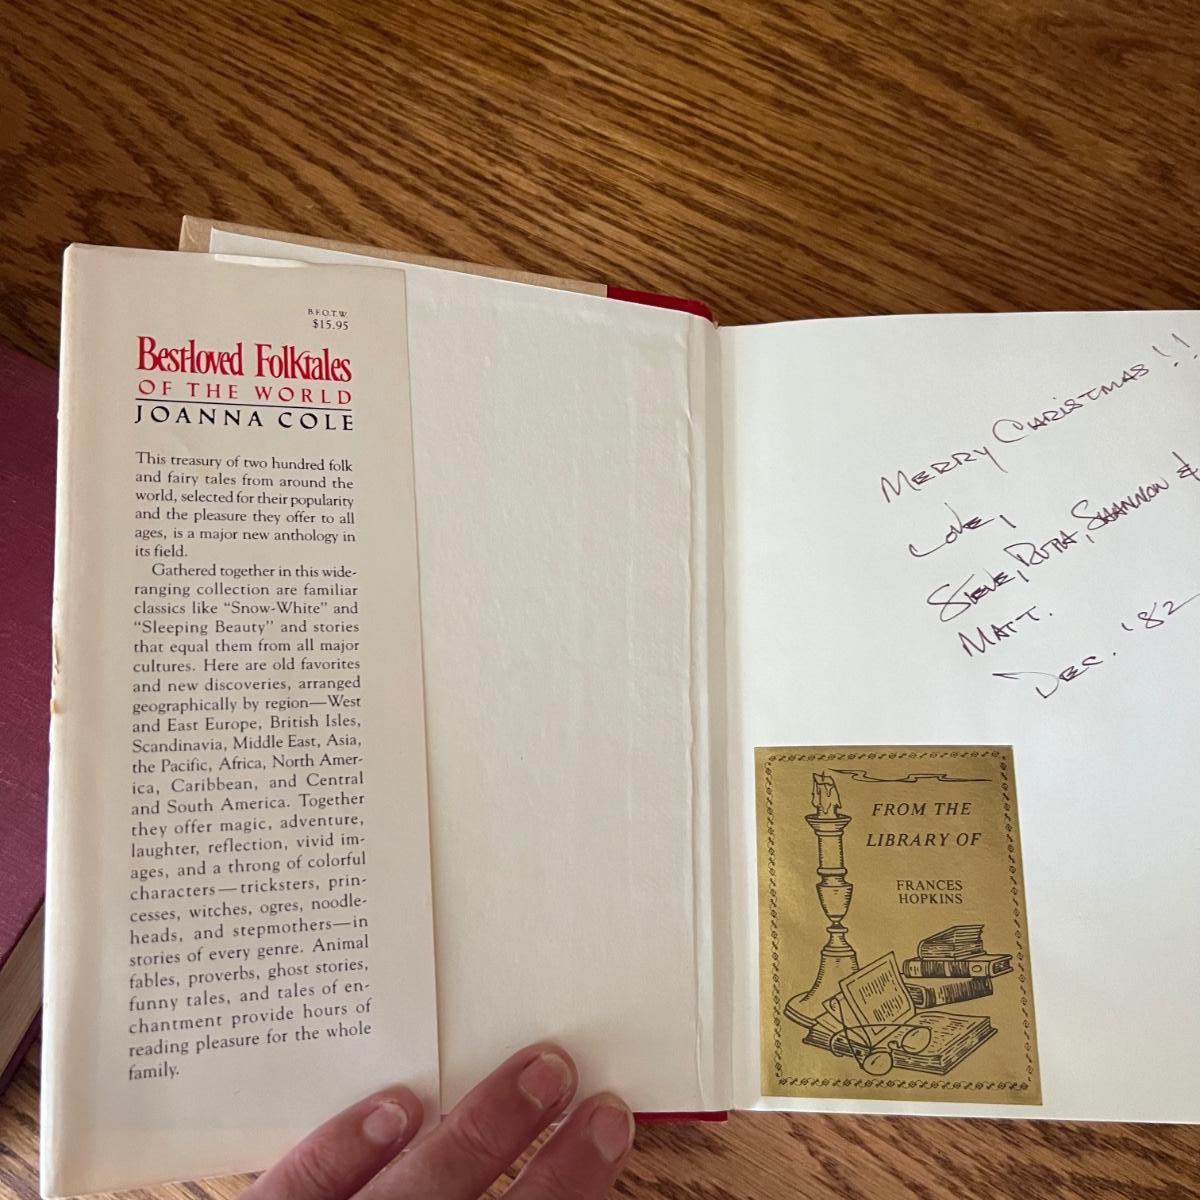 B.F.O.T.W.
$15.95
Best-loved Folktales
OF THE WORLD
JOANNA COLE
This treasury of two hundred folk
and fairy tales from around the
world, selected for their popularity
and the pleasure they offer to all
ages, is a major new anthology in
its field.
Gathered together in this wide-
ranging collection are familiar
classics like “Snow-White” and
“Sleeping Beauty” and stories
that equal them from all major
cultures. Here are old favorites
and new discoveries, arranged
geographically by region—West
and East Europe, British Isles,
Scandinavia, Middle East, Asia,
the Pacific, Africa, North Amer-
ica, Caribbean, and Central
and South America. Together
they offer magic, adventure,
laughter, reflection, vivid im-
ages, and a throng of colorful
characters—tricksters, prin-
cesses, witches, ogres, noodle-
heads, and stepmothers—in
stories of every genre. Animal
fables, proverbs, ghost stories,
funny tales, and tales of en-
chantment provide hours of
reading pleasure for the whole
family.
MERRY CHRISTMAS!!
LOVE,
STEVE, RUTH, SHANNON &
MATT.
DEC. '82
FROM THE
LIBRARY OF
FRANCES
HOPKINS